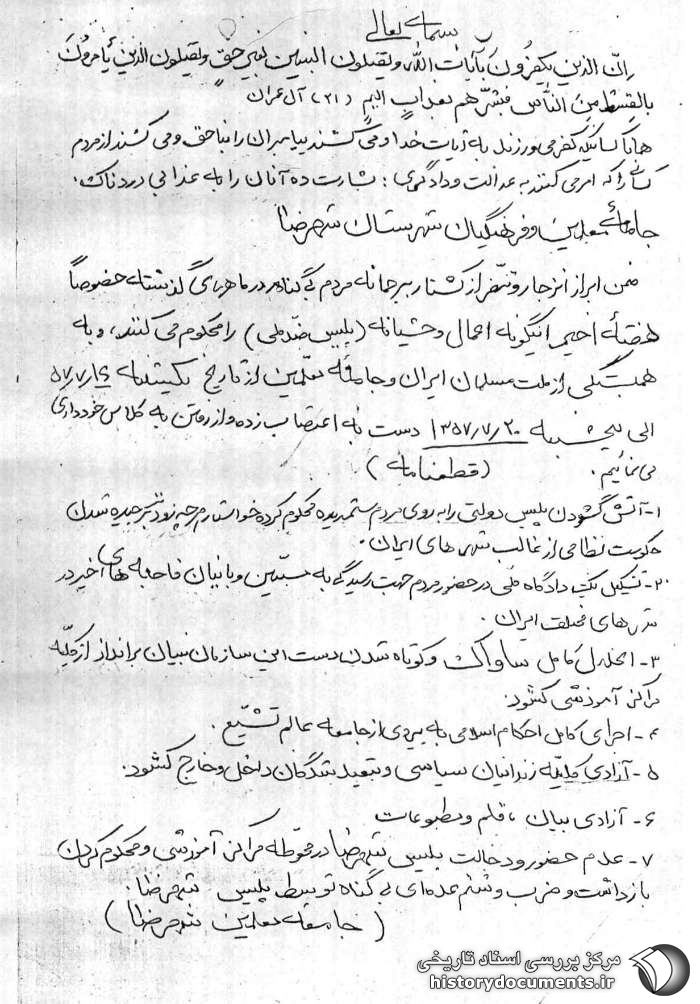 بسمه تعالی
اِنَّ الذین یکفرُونَ بآیات اللّه و یقتلون النبیین بغیر حقٍ و یقتلون الذین یأمروُنَ
بالقِسْطِ مِنَ النّاس فَبشّر هم بعذابٍ الیم (۲۱) آل عمران
همانا کسانیکه کفر می ورزند به آیات خدا و می کشند پیامبران را بناحق و می کشند از مردم
کسانی را که امر می کنند به عدالت و دادگری : بشارت ده آنان را به عذابی دردناک.
جامعهٔ معلمین و فرهنگیان شهرستان شهرضا
ضمن ابراز انزجار و تنفّر از کشتار بیرحمانه مردم بی گناه در ماههای گذشته خصوصاً
هفتهٔ اخیر اینگونه اعمال وحشیانه (پلیس ضدّملی) را محکوم می کنند، و به
همبستگی از ملت مسلمان ایران و جامعهٔ معلّمین از تاریخ یکشنبه ۵۷/۷/۱۶
الی پنجشنبه ۱۳۵۷/۷/۲۰ دست به اعتصاب زده و از رفتن به کلاس خودداری
می نمائیم. (قطعنامه)
۱- آتش گشودن پلیس دولتی را به روی مردم ستمدیده محکوم کرده خواستاریم هر چه زودتر برچیده شدن
حکومت نظامی از غالب شهرهای ایران.
۲- تشکیل یک دادگاه ملّی در حضور مردم جهت رسیدگی به مسبّبین و بانیان فاجعه های اخیر در
شهرهای مختلف ایران.
۳- انحلال کامل ساواک و کوتاه شدن دست این سازمان بنیان برانداز از کلیّه
مراکز آموزشی کشور.
۴- اجرای کامل احکام اسلامی به پیروی از جامعه عالم تشیّع.
۵- آزادی کلیّه زندانیان سیاسی و تبعید شدگان داخل و خارج کشور.
۶- آزادی بیان، قلم و مطبوعات
۷- عدم حضور و دخالت پلیس شهرضا در محوطه مراکز آموزشی و محکوم کردن
بازداشت و ضرب و شتم عده ای بی گناه توسط پلیس شهرضا.
(جامعه معلمین شهرضا)
مرکز بررسی اسناد تاریخی
historydocuments.ir